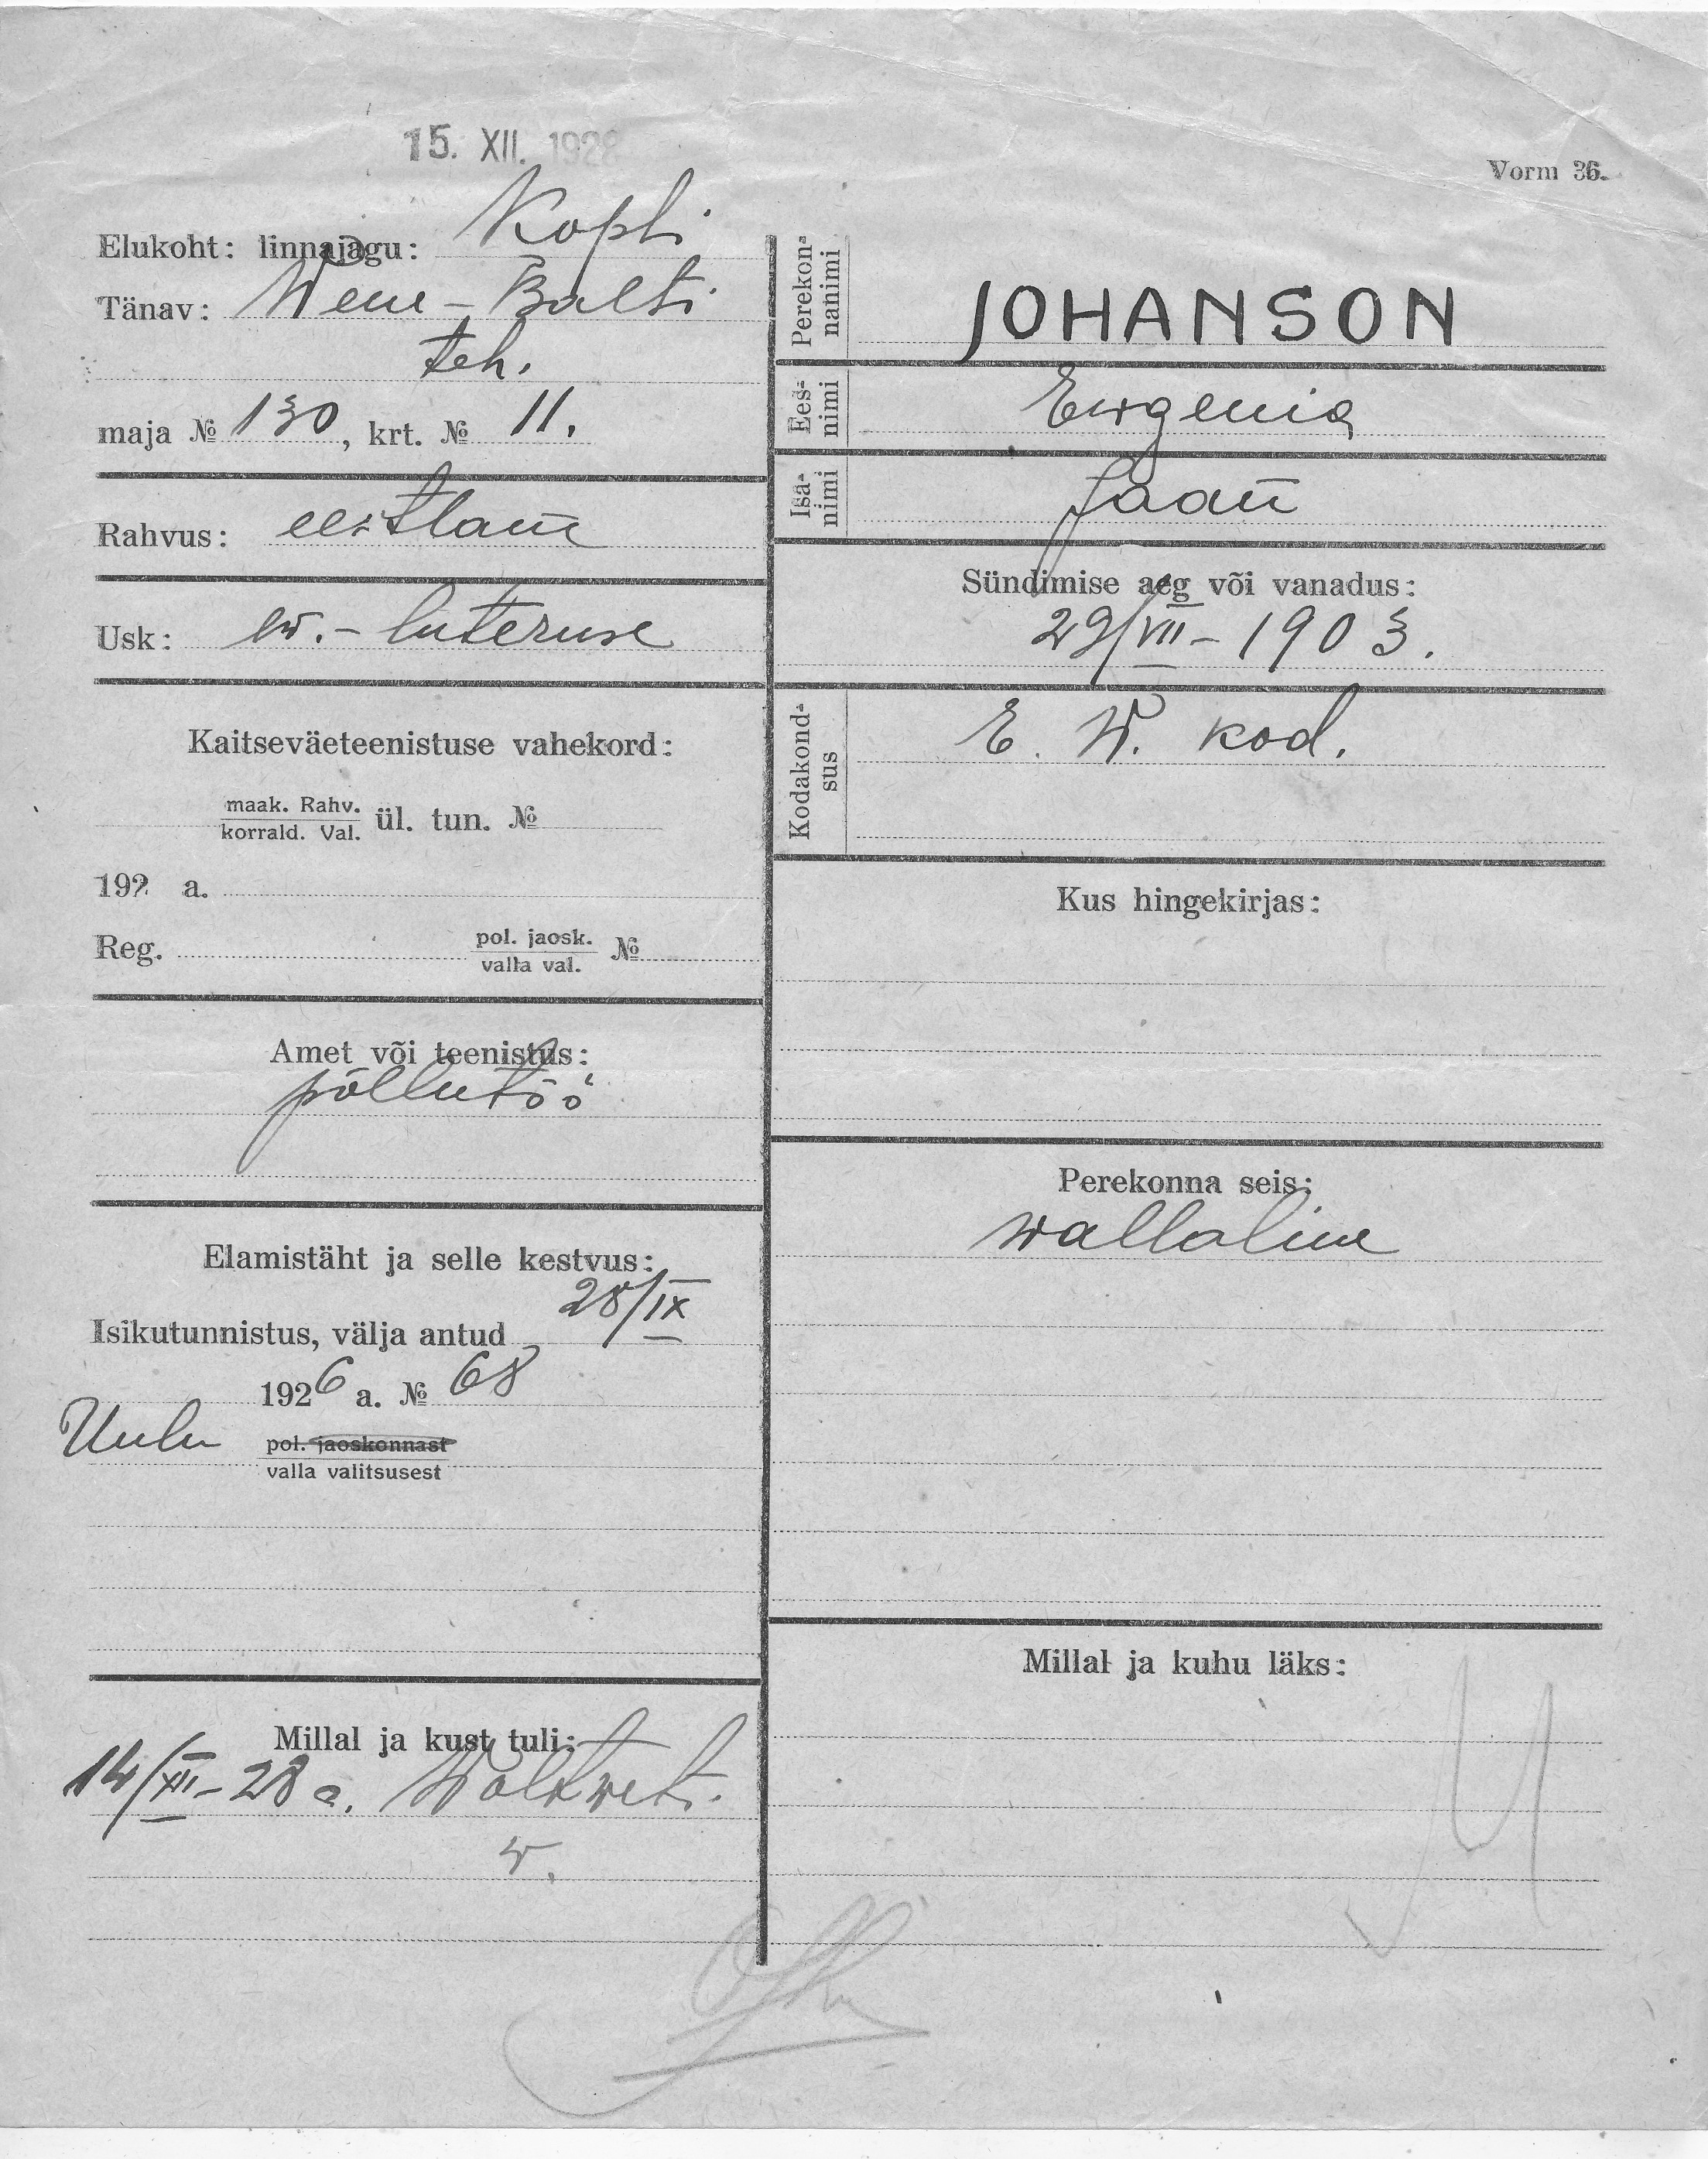 15. XII. 1928
Vorm 36.
Elukoht: linnajagu: Kopli
Tänav: Wene-Balti
teh.
maja № 130, krt. № 11.
Rahvus: eestlane
Usk: ew.-luteruse
Kaitseväeteenistuse vahekord:
maak. Rahv.
korrald. Val. ül. tun. №
192 a.
Reg. pol. jaosk.
valla val. №
Amet või teenistus:
põllutöö
Elamistäht ja selle kestvus:
Isikutunnistus, välja antud 28/IX
1926 a. № 68
Uulu pol. jaoskonnast
valla valitsusest
Millal ja kust tuli:
14/XII-28 a. Woltweti
v.
Perekonnanimi
JOHANSON
Eesnimi
Ewgenia
Isanimi
Jaan
Sündimise aeg või vanadus:
29/VII-1903.
Kodakondsus
E. W. kod.
Kus hingekirjas:
Perekonna seis:
wallaline
Millal ja kuhu läks: